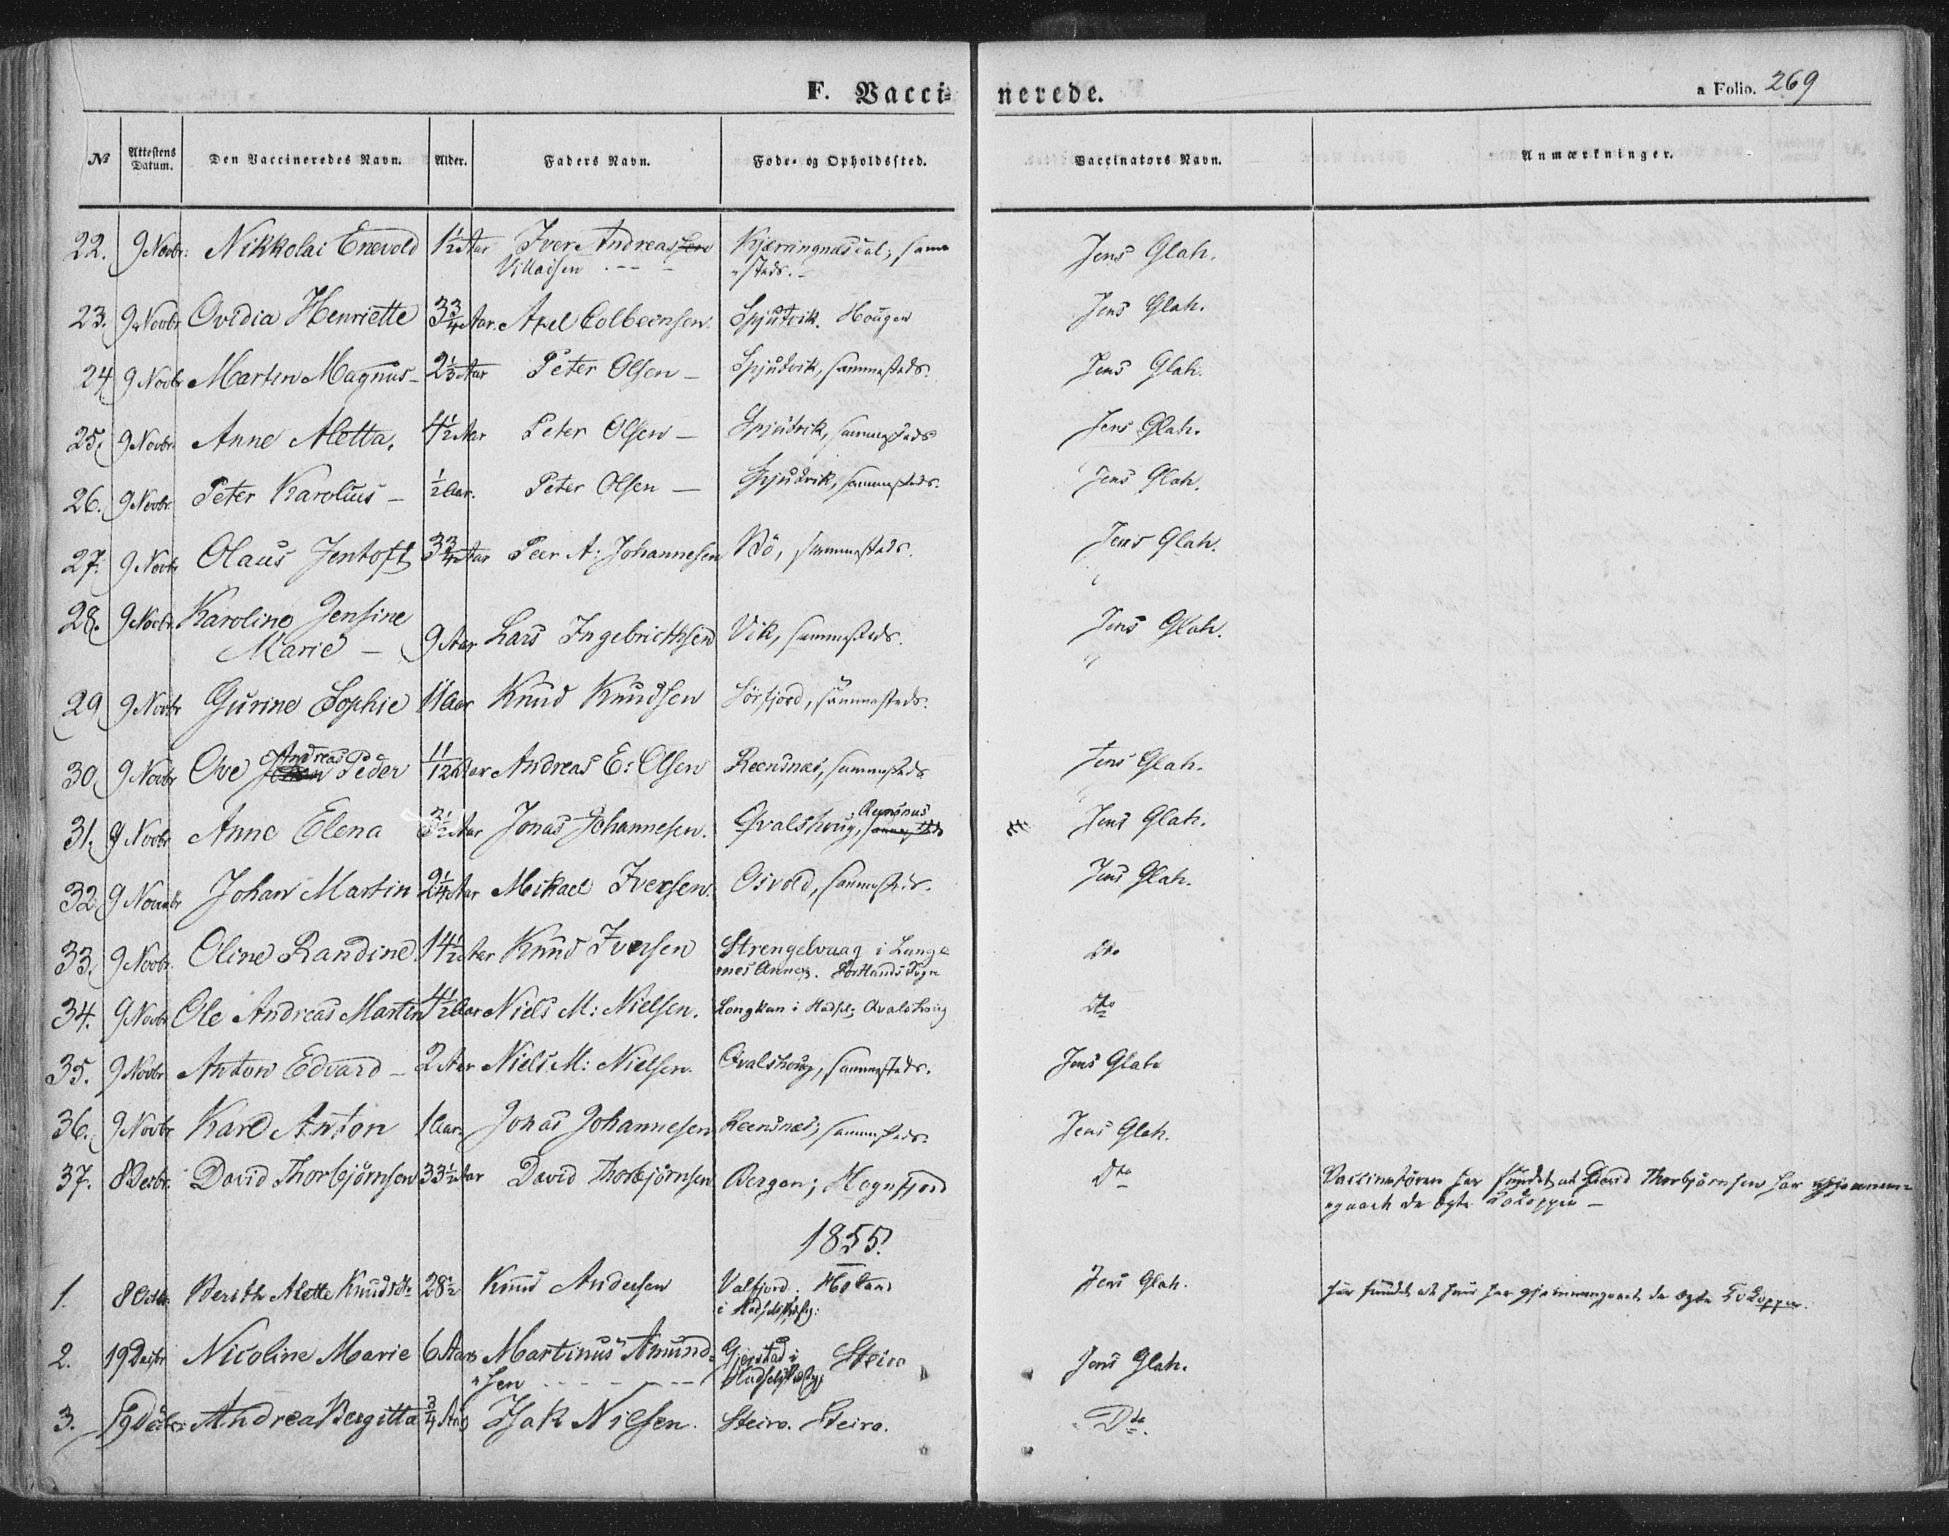 F. Vaccinerede.
a Folio. 269
№ Attestens Datum. Den Vaccineredes Navn. Alder. Faders Navn. Føde- og Opholdssted. Vaccinators Navn. Anmærkninger.
22. 9 Novbr: Nikkolai Enevold 1½ Aar Iver Andreas Kjørringnæsial, samme Jens Glah.
Villaisen - - - "steds. -
23. 9 Novbr Ovidia Henriette 3¾ Aar. Axel Colbeensen. Spjutvik. Hougen Jens Glah.
24 9 Novbr Marten Magnus - 2⅓ Aar Peter Olsen - Spjudvik, sammesteds. Jens Glah.
25. 9 Novbr. Anne Aletta. 4½ Aar Peter Olsen - Spjudvik, sammesteds Jens Glah.
26. 9 Novbr Peter Karolius - ½ Aar. Peter Olsen - Spjudvik, sammesteds. Jens Glah.
27. 9 Novbr Olaus Jentoft 3¾ Aar Peer A: Johannesen Bö, sammesteds. Jens Glah.
28. 9 Novbr. Karoline Jensine
Marie - 9 Aar Lars Ingebrichtsen Vik, sammesteds. Jens Glah.
29 9 Novbr Gurine Sophie 11 Aar Knud Knudsen Sörfjord, sammesteds.
30. 9 Novbr Ove Andreas Peder 11/12 Aar Andreas E: Olsen Reensnæs, sammesteds Jens Glah.
31. 9 Novbr Anne Elena 3½ Aar Jonas Johannesen. Qvalshoug, Reensnæs sammesteds Jens Glah.
32 9 Novembr Johan Martin 2¼ Aar Mikael Iversen. Osvold, sammesteds. Jens Glah.
33. 9 Novbr. Oline Randine 14½ Aar Knud Iversen Strengelvaag i Lange- Dto
næs Annex. Sortlands Sogn
34. 9 Novbr Ole Andreas Martin 4½ Aar Niels M: Nielsen. Langkan i Hadsel; Qvalshoug Dto
35. 9 Novbr Anton Edvard - 2 Aar Niels M: Nielsen. Qvalshoug, sammesteds. Jens Glah
36. 9 Novbr Karl Anton 1 Aar. Jonas Johannesen Reensnæs, sammesteds. Jens Glah.
37. 8 Decbr. David Thorbjörnsen 33½ Aar David Thorbjörnsen Bergen; Hognfjord Dto Vaccinatören har fundet at David Thorbjörnsen har gjennem-
egaaet de ægte Kokopper -
1855.
1. 8 Octbr. Berith Alette Knudsdtr 28½ Knud Andersen Valfjord. Holand Jens Glah. har fundet at hun har gjennemgaaet de ægte Kokopper.
i Hadsels Præstg:
2. 19 Decbr Nicoline Marie 6 Aar Martinus Amund- Gjerstad i Steiro Jens Glah.
"sen - - - - - Hadsels Præstgj
3. 19 Decbr. Andrea Bergitta ¾ Aar Isak Nilsen. Steiro. Steiro. Dto.